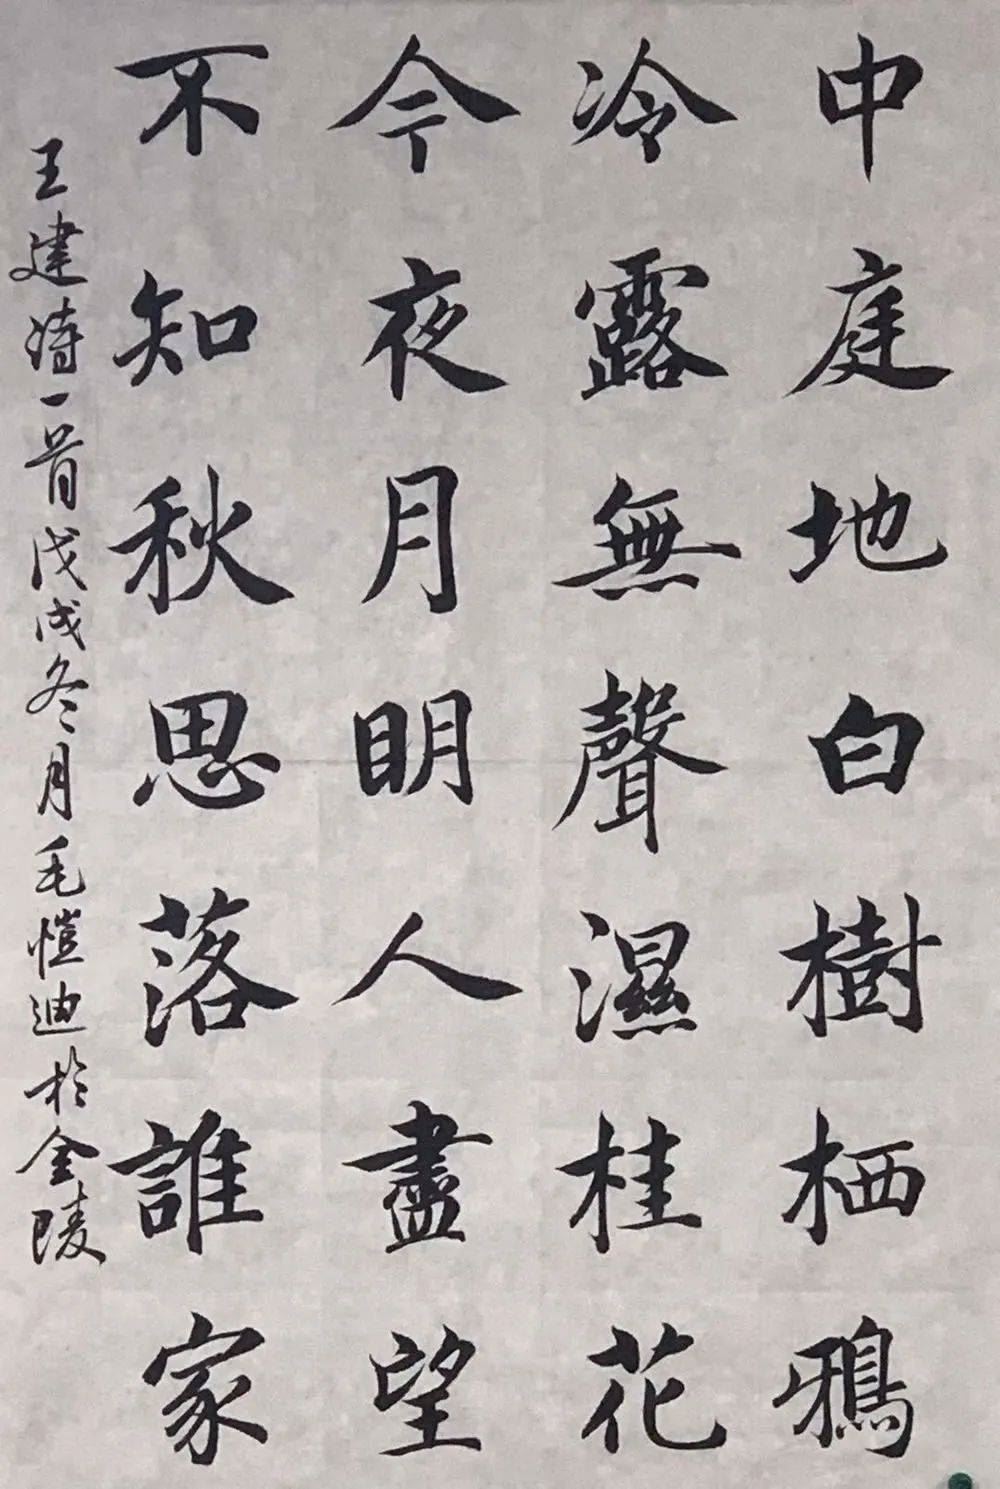 中庭地白樹栖鴉
冷露無聲濕桂花
今夜月明人盡望
不知秋思落誰家
王建诗一首戊戌冬月毛愷迪於金陵